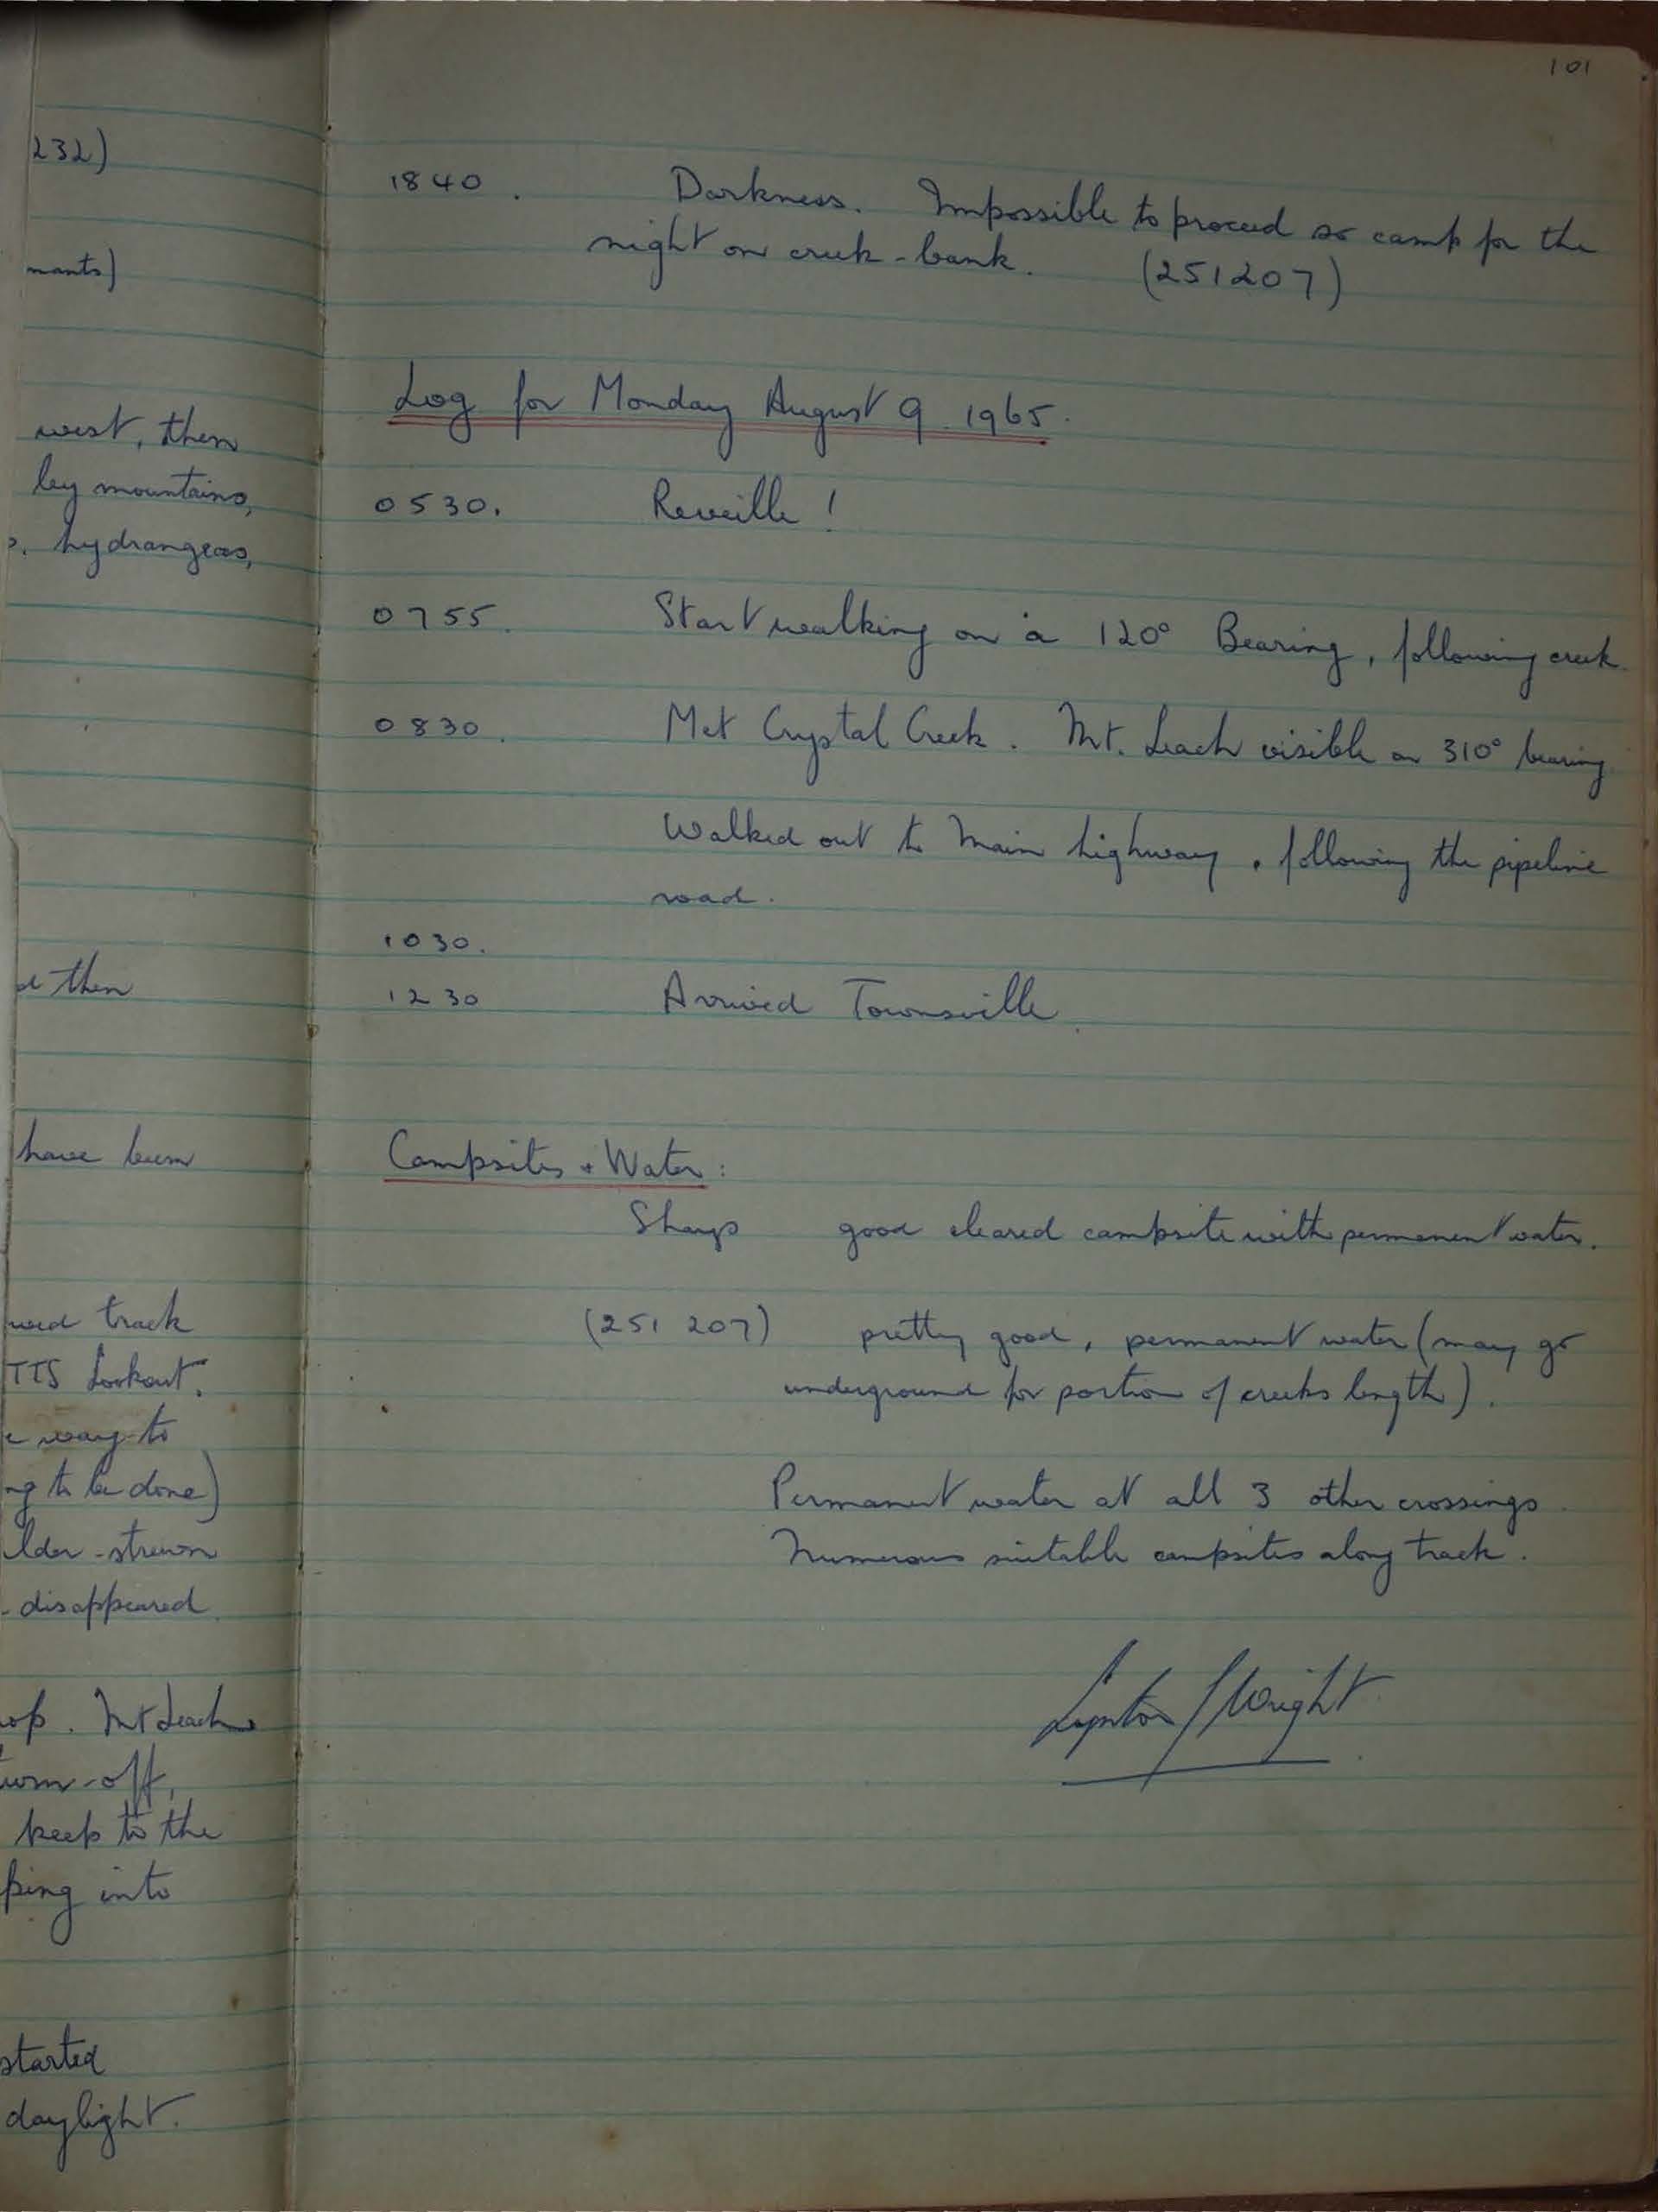 232)
mants)
west, then
ley mountains,
hydrangeas,
d then
have been
track
TTS Lookout.
way to
ng to be done)
lder-strewn
disappeared
op. Mt Leach
urn-off,
keep to the
ping into
started
daylight.
101
1840. Darkness. Impossible to proceed so camp for the
night on creek-bank. (251207)
Log for Monday August 9. 1965.
0530. Reveille!
0755. Start walking on a 120° Bearing, following creek.
0830. Met Crystal Creek. Mt. Leach visible on 310° bearing
Walked out to Main highway, following the pipeline
road.
1030.
1230 Arrived Townsville.
Campsites + Water:
Shays good cleared campsite with permanent water.
(251 207) pretty good, permanent water (may go
underground for portion of creeks length).
Permanent water at all 3 other crossings.
Numerous suitable campsites along track.
Wright.